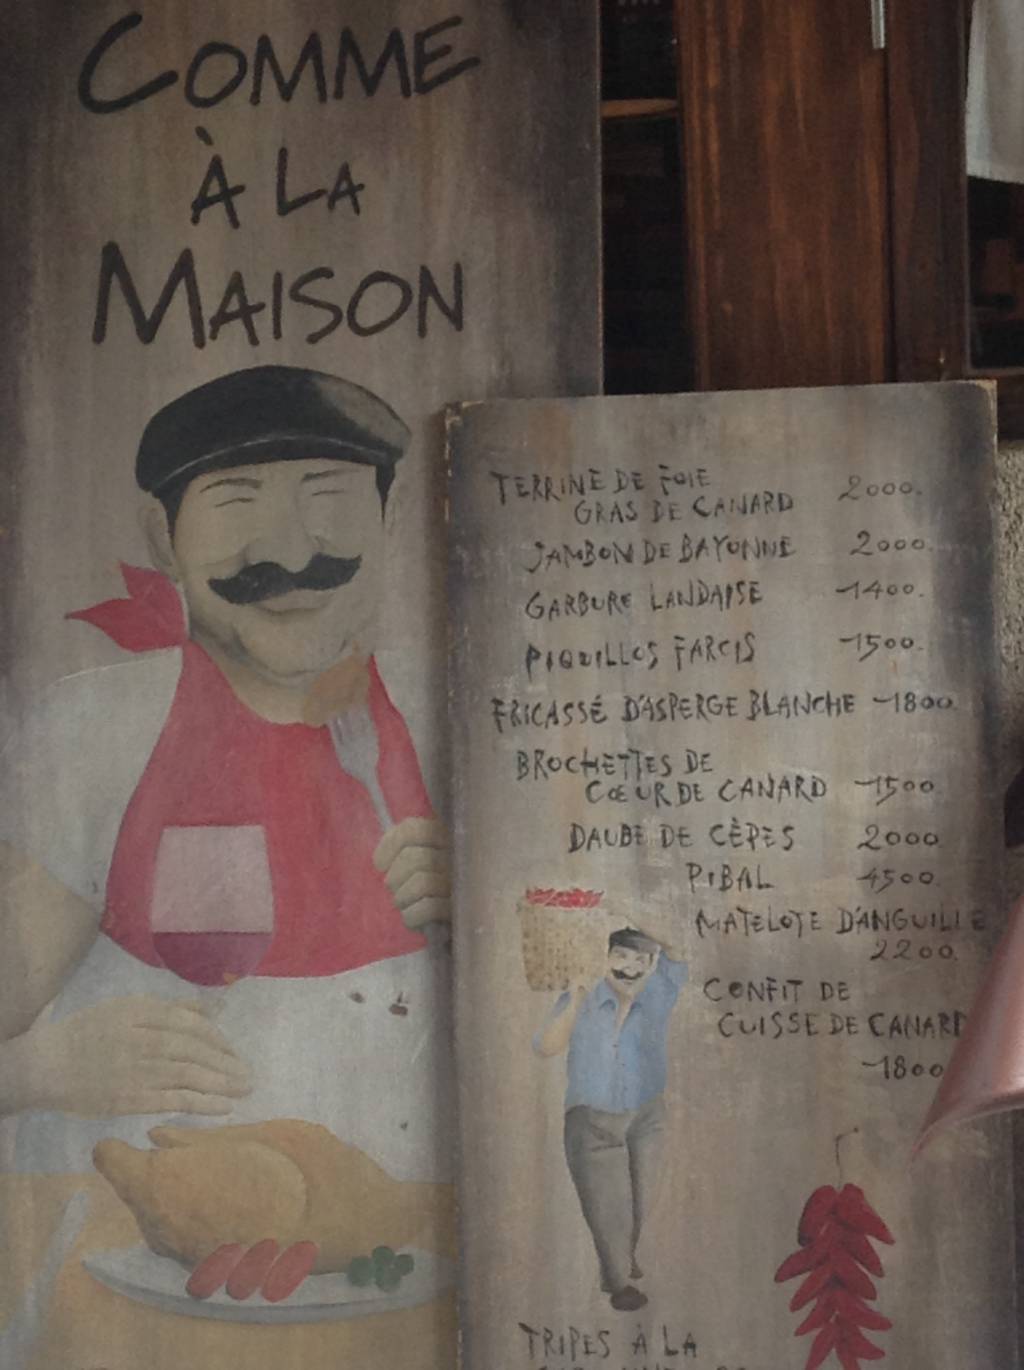 COMME
À LA
MAISON
TERRINE DE FOIE
GRAS DE CANARD 2000.
JAMBON DE BAYONNE 2000.
GARBURE LANDAISE 1400.
PIQUILLOS FARCIS 1500.
FRICASSÉ D'ASPERGE BLANCHE 1800.
BROCHETTES DE
CŒUR DE CANARD 1500.
DAUBE DE CÈPES 2000.
PIBAL 4500.
MATELOTE D'ANGUILLE
2200.
CONFIT DE
CUISSE DE CANARD
1800.
TRIPES À LA